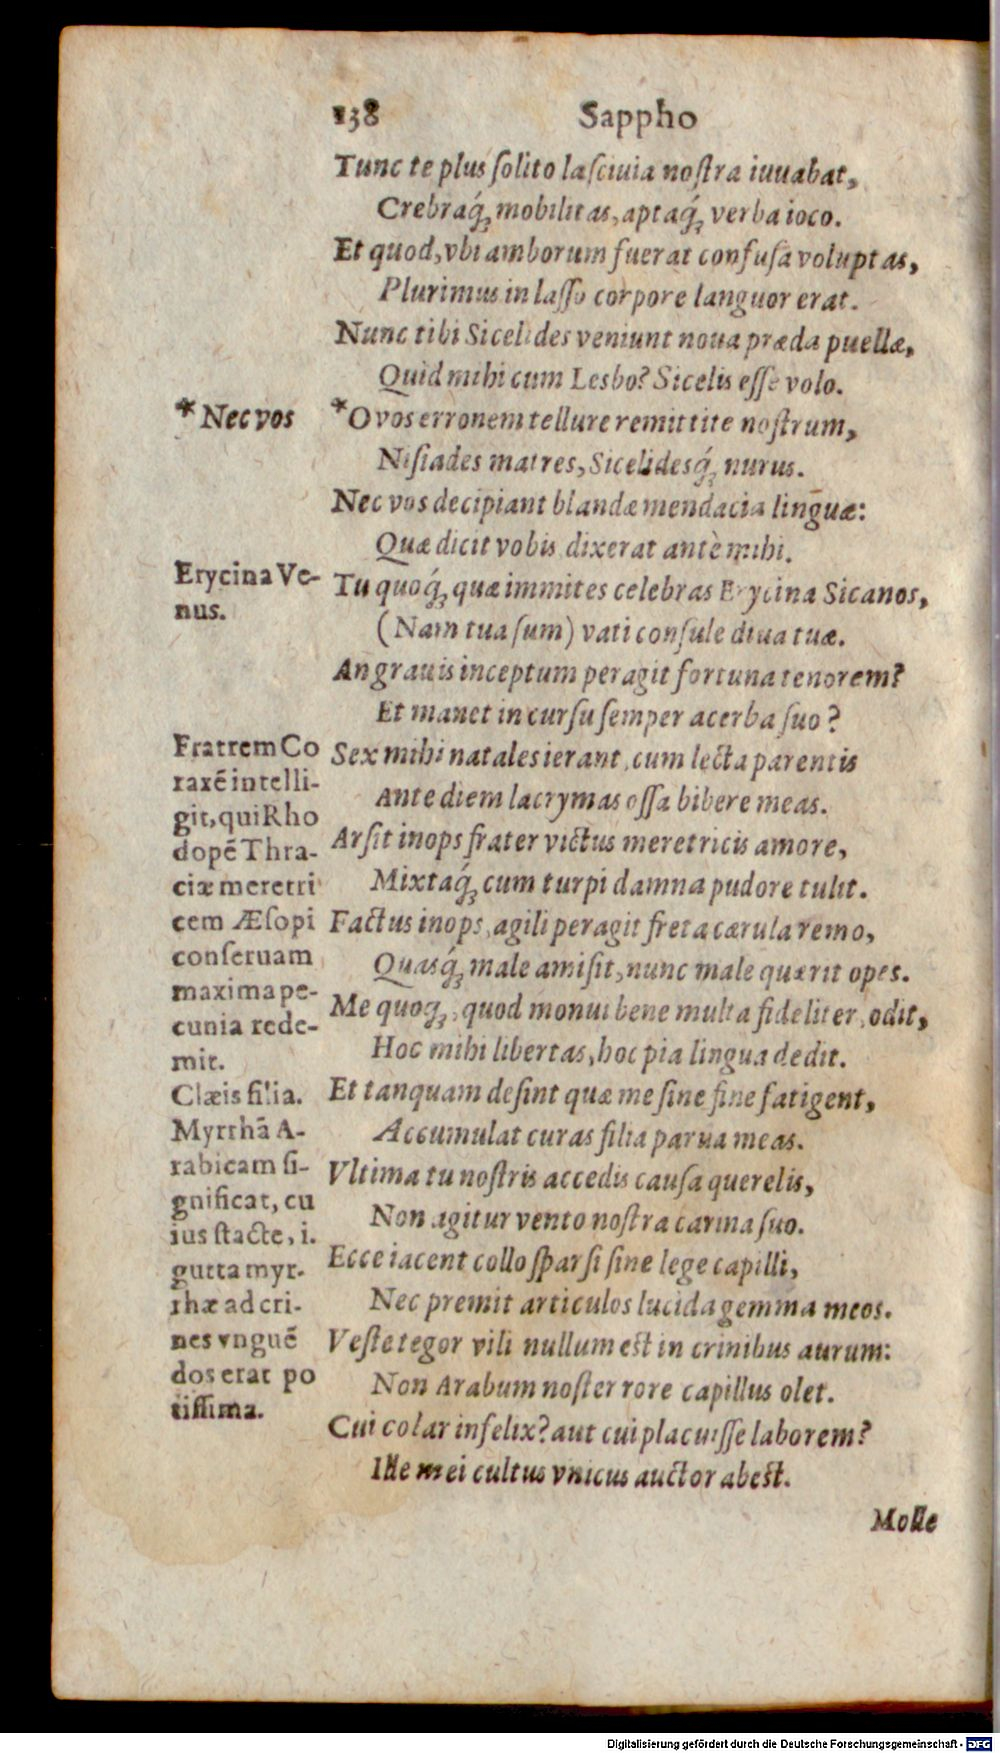 138 Sappho
Tunc te plus ſolito laſciuia noſtra iuuabat,
Crebraq́ꝫ mobilitas, aptaq́ꝫ verba ioco.
Et quod, vbi amborum fuerat confuſa voluptas,
Plurimus in laſſo corpore languor erat.
Nunc tibi Sicelides veniunt noua præda puellæ,
Quid mihi cum Lesbo? Sicelis eſſe volo.
* Nec vos
*O vos erronem tellure remittite noſtrum,
Niſiades matres, Sicelidesq́ꝫ nurus.
Nec vos decipiant blandæ mendacia linguæ:
Quæ dicit vobis dixerat antè mihi.
Erycina Ve-
nus.
Tu quoq́ꝫ quæ immites celebras Erycina Sicanos,
(Nam tua ſum) vati conſule diua tuæ.
An grauis inceptum peragit fortuna tenorem?
Et manet in curſu ſemper acerba ſuo?
Fratrem Co
raxē intelli-
git, qui Rho
dopē Thra-
ciæ meretri
cem Æſopi
conſeruam
maxima pe-
cunia rede-
mit.
Sex mihi natales ierant, cum lecta parentis
Ante diem lacrymas oſſa bibere meas.
Arſit inops frater victus meretricis amore,
Mixtaq́ꝫ cum turpi damna pudore tulit.
Factus inops, agili peragit freta cærula remo,
Quasq́ꝫ male amiſit, nunc male quærit opes.
Me quoqꝫ, quod monui bene multa fideliter, odit,
Hoc mihi libertas, hoc pia lingua dedit.
Clæis filia.
Et tanquam deſint quæ me ſine fine fatigent,
Accumulat curas filia parua meas.
Myrrhā A-
rabicam ſi-
gnificat, cu
ius ſtacte, i.
gutta myr-
rhæ ad cri-
nes vnguē
dos erat po
tiſſima.
Vltima tu noſtris accedis cauſa querelis,
Non agitur vento noſtra carina ſuo.
Ecce iacent collo ſparſi ſine lege capilli,
Nec premit articulos lucida gemma meos.
Veſte tegor vili nullum est in crinibus aurum:
Non Arabum noſter rore capillus olet.
Cui colar infelix? aut cui placuiſſe laborem?
Ille mei cultus vnicus auctor abest.
Molle
Digitalisierung gefördert durch die Deutsche Forschungsgemeinschaft - DFG